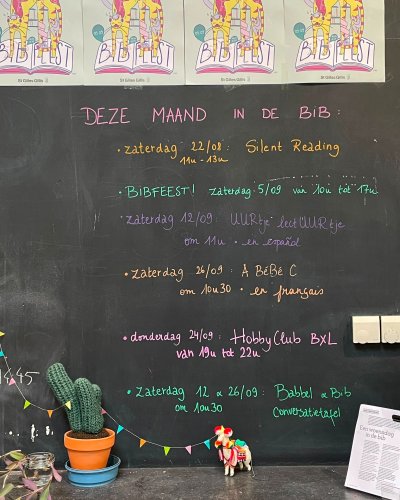 BIBFEST
St-Gilles Gillis
BIBFEST
St-Gilles Gillis
BIBFEST
St-Gilles Gillis
BIBFEST
St-Gilles Gillis
DEZE MAAND IN DE BIB:
• zaterdag 22/08: Silent Reading
11u - 13u
• BIBFEEST! zaterdag 5/09 van 10u tot 17u
• zaterdag 12/09: UURtje lectUURtje
om 11u • en español
• zaterdag 26/09: A BéBé C
om 10u30 • en français
• donderdag 24/09: HobbyClub BXL
van 19u tot 22u
• zaterdag 12 & 26/09: Babbel & Bib
om 10u30 Conversatietafel
14:45
Een woensdag
in de bib